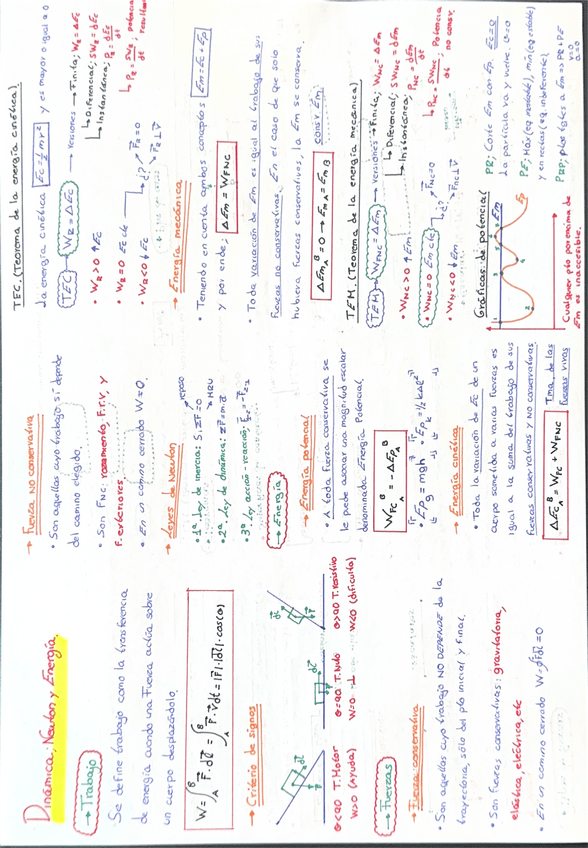 Dinámica: Newton y Energía.
→ Trabajo
Se define trabajo como la transferencia
de energía cuando una Fuerza actúa sobre
un cuerpo desplazándolo.
W = ∫_A^B F⃗·dℓ⃗ = ∫_A^B F⃗·v⃗dt = |F⃗|·|dℓ⃗|·cos(α)
→ Criterio de signos
θ<90 T. Motor
W>0 (Ayuda)
θ=90 T. Nulo
W=0 ⊥
θ>90 T. resistivo
W<0 (dificulta)
→ Fuerzas
→ Fuerza conservativa
• Son aquellas cuyo trabajo NO DEPENDE de la
trayectoria, sólo del pto inicial y final.
• Son fuerzas conservativas: gravitatoria,
elástica, eléctrica, etc
• En un camino cerrado W=∮F⃗dℓ⃗=0
→ Fuerza NO conservativa
• Son aquellas cuyo trabajo, sí depende
del camino elegido.
• Son FNC: rozamiento, F.r.v, y
f. exteriores.
• En un camino cerrado W≠0.
→ Leyes de Newton
• 1ª Ley de inercia: Si ΣF=0
reposo
MRU
• 2ª Ley de dinámica: ΣF=m·a
• 3ª Ley acción-reacción:
→ Energía
→ Energía potencial
• A toda fuerza conservativa se
le puede asociar una magnitud escalar
denominada Energía Potencial.
W_FC A^B = -ΔEp_A^B
• Ep_g = mgh • Ep_e = ½ kΔℓ²
→ Energía cinética
• Toda la variación de Ec de un
cuerpo sometida a varias fuerzas es
igual a la suma del trabajo de sus
fuerzas conservativas y no conservativas
ΔEc_A^B = W_FC + W_FNC
Tma. de las
fuerzas vivas
TEC. (Teorema de la energía cinética.)
La energía cinética Ec=½mv² y es mayor o igual a 0
TEC → W_R = ΔEc → versiones → Finita; W_R=ΔEc
↳ Diferencial; δW_R=dEc
↳ Instantánea; P_R = dEc/dt
↳ P_R = δW_R/dt, potencia
• W_R>0 ↑Ec
• W_R=0 Ec cte
¿? F⃗_R=0
F⃗_R⊥v⃗
• W_R<0 ↓Ec
→ Energía mecánica
• Teniendo en cuenta ambos conceptos Em=Ec+Ep
y por ende; ΔEm = W_FNC
• Toda variación de Em es igual al trabajo de sus
fuerzas no conservativas. En el caso de que solo
hubiera fuerzas conservativas, la Em se conserva.
ΔEm_A^B = 0 → Em_A = Em_B
consv. Em
TEM. (Teorema de la energía mecánica)
TEM → W_FNC = ΔEm → versiones → Finita; W_NC=ΔEm
↳ Diferencial; δW_NC=dEm
↳ Instantánea; P_NC = dEm/dt
↳ P_NC = δW_NC/dt, Potencia
no consv.
• W_NC>0 ↑Em
• W_NC=0 Em cte
¿? F⃗_NC=0
F⃗_NC⊥v⃗
• W_NC<0 ↓Em
Gráficas de potencial
Em
Ep
Cualquier pto por encima de
Em es inaccesible.
PR; Corte Em con Ep. Ec=0
La partícula va y vuelve v=0
PE; Máx (eq. inestable), mín (eq. estable)
y en rectas (eq. indiferente)